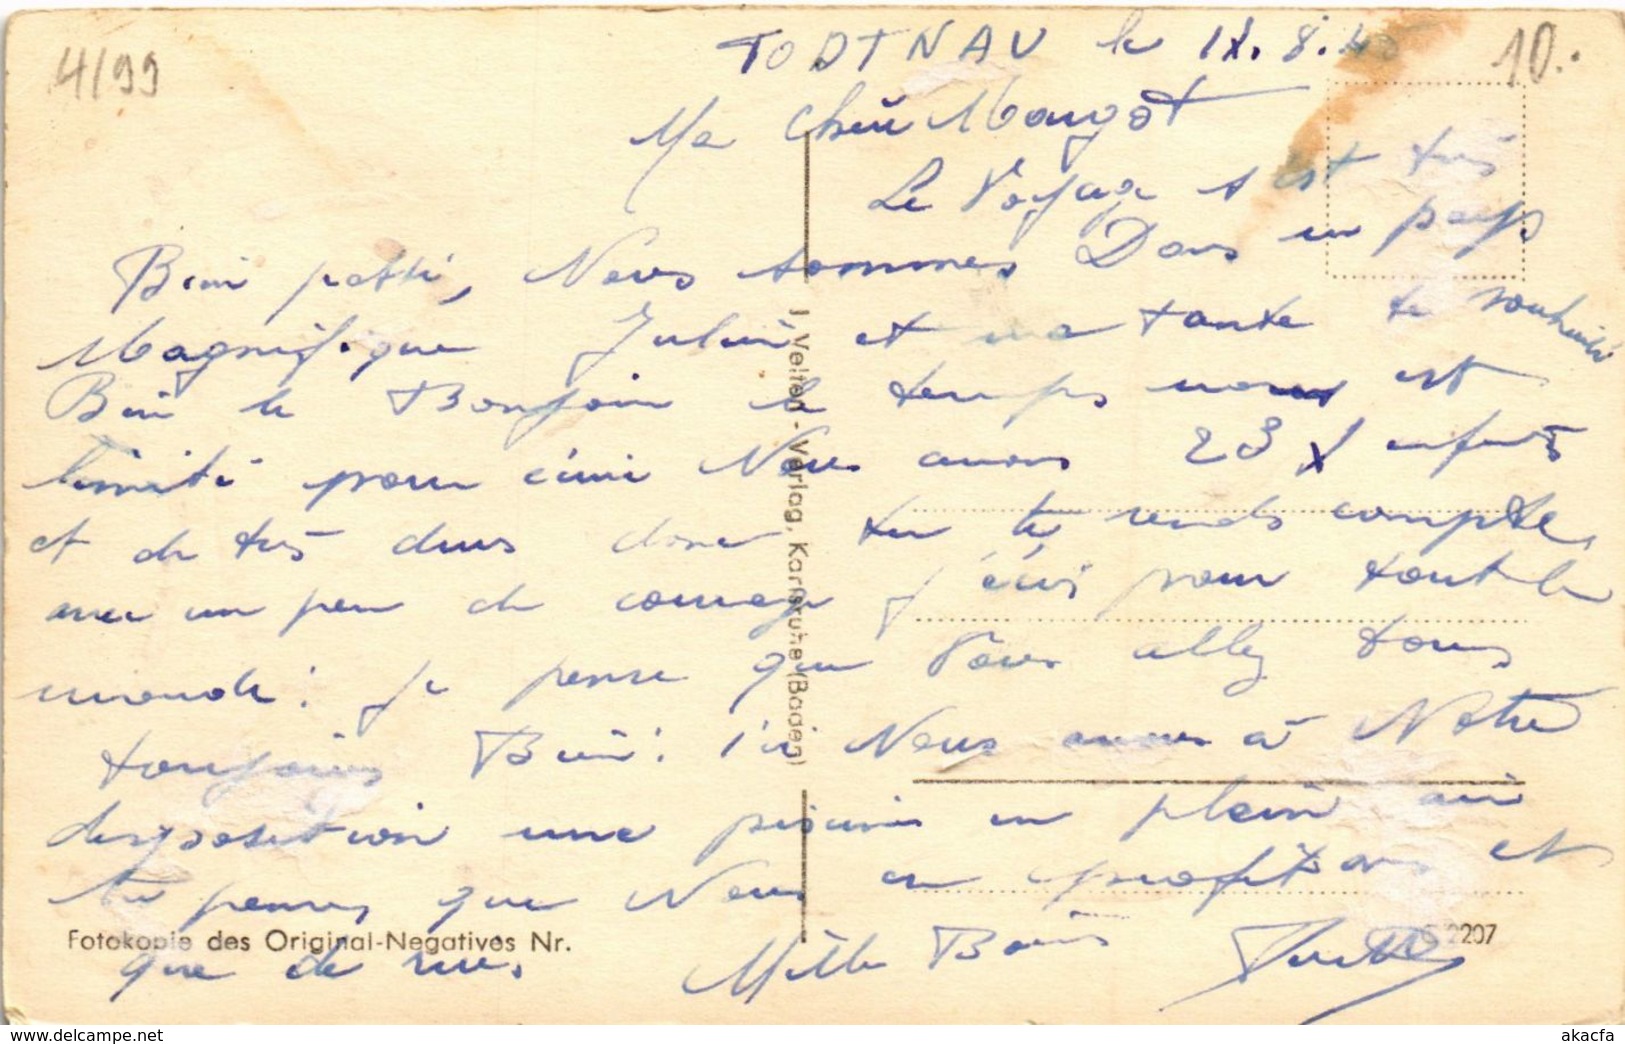 4/99
10.-
TODTNAU le 18.8.
Ma Chère Margot
Le Voyage s'est très
Bien passé, Nous sommes Dans un pays
Magnifique Julien et ma tante te souhaite
Bien le Bonjour le temps nous est
limité pour écrire Nous avons 23 enfants
et de très durs donc tu te rends compte,
avec un peu de courage j'écris pour tout le
monde! je pense que Vous allez tous
toujours Bien! ici Nous avons à Notre
disposition une piscine en plein air
tu penses que Nous en profitons et
que de rire. Mille Bons
J. Velten - Verlag, Karlsruhe (Baden)
Fotokopie des Original-Negatives Nr. 2207
akacfa.delcampe.net